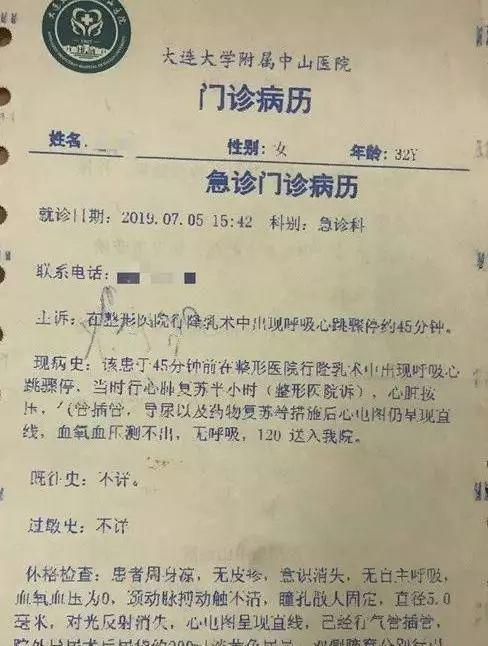 大连大学附属中山医院
门诊病历
姓名. 性别: 女 年龄: 32Y
急诊门诊病历
就诊日期: 2019.07.05 15:42 科别: 急诊科
联系电话:
主诉: 在整形医院行隆乳术中出现呼吸心跳骤停约45分钟。
现病史: 该患于45分钟前在整形医院行隆乳术中出现呼吸心
跳骤停, 当时行心肺复苏半小时 (整形医院诉), 心脏按
压, 气管插管, 导尿以及药物复苏等措施后心电图仍呈现直
线, 血氧血压测不出, 无呼吸, 120 送入我院。
既往史: 不详。
过敏史: 不详
体格检查: 患者周身凉, 无皮疹, 意识消失, 无自主呼吸,
血氧血压为0, 颈动脉搏动触不清, 瞳孔散大固定, 直径5.0
毫米, 对光反射消失, 心电图呈现直线, 已经行气管插管,